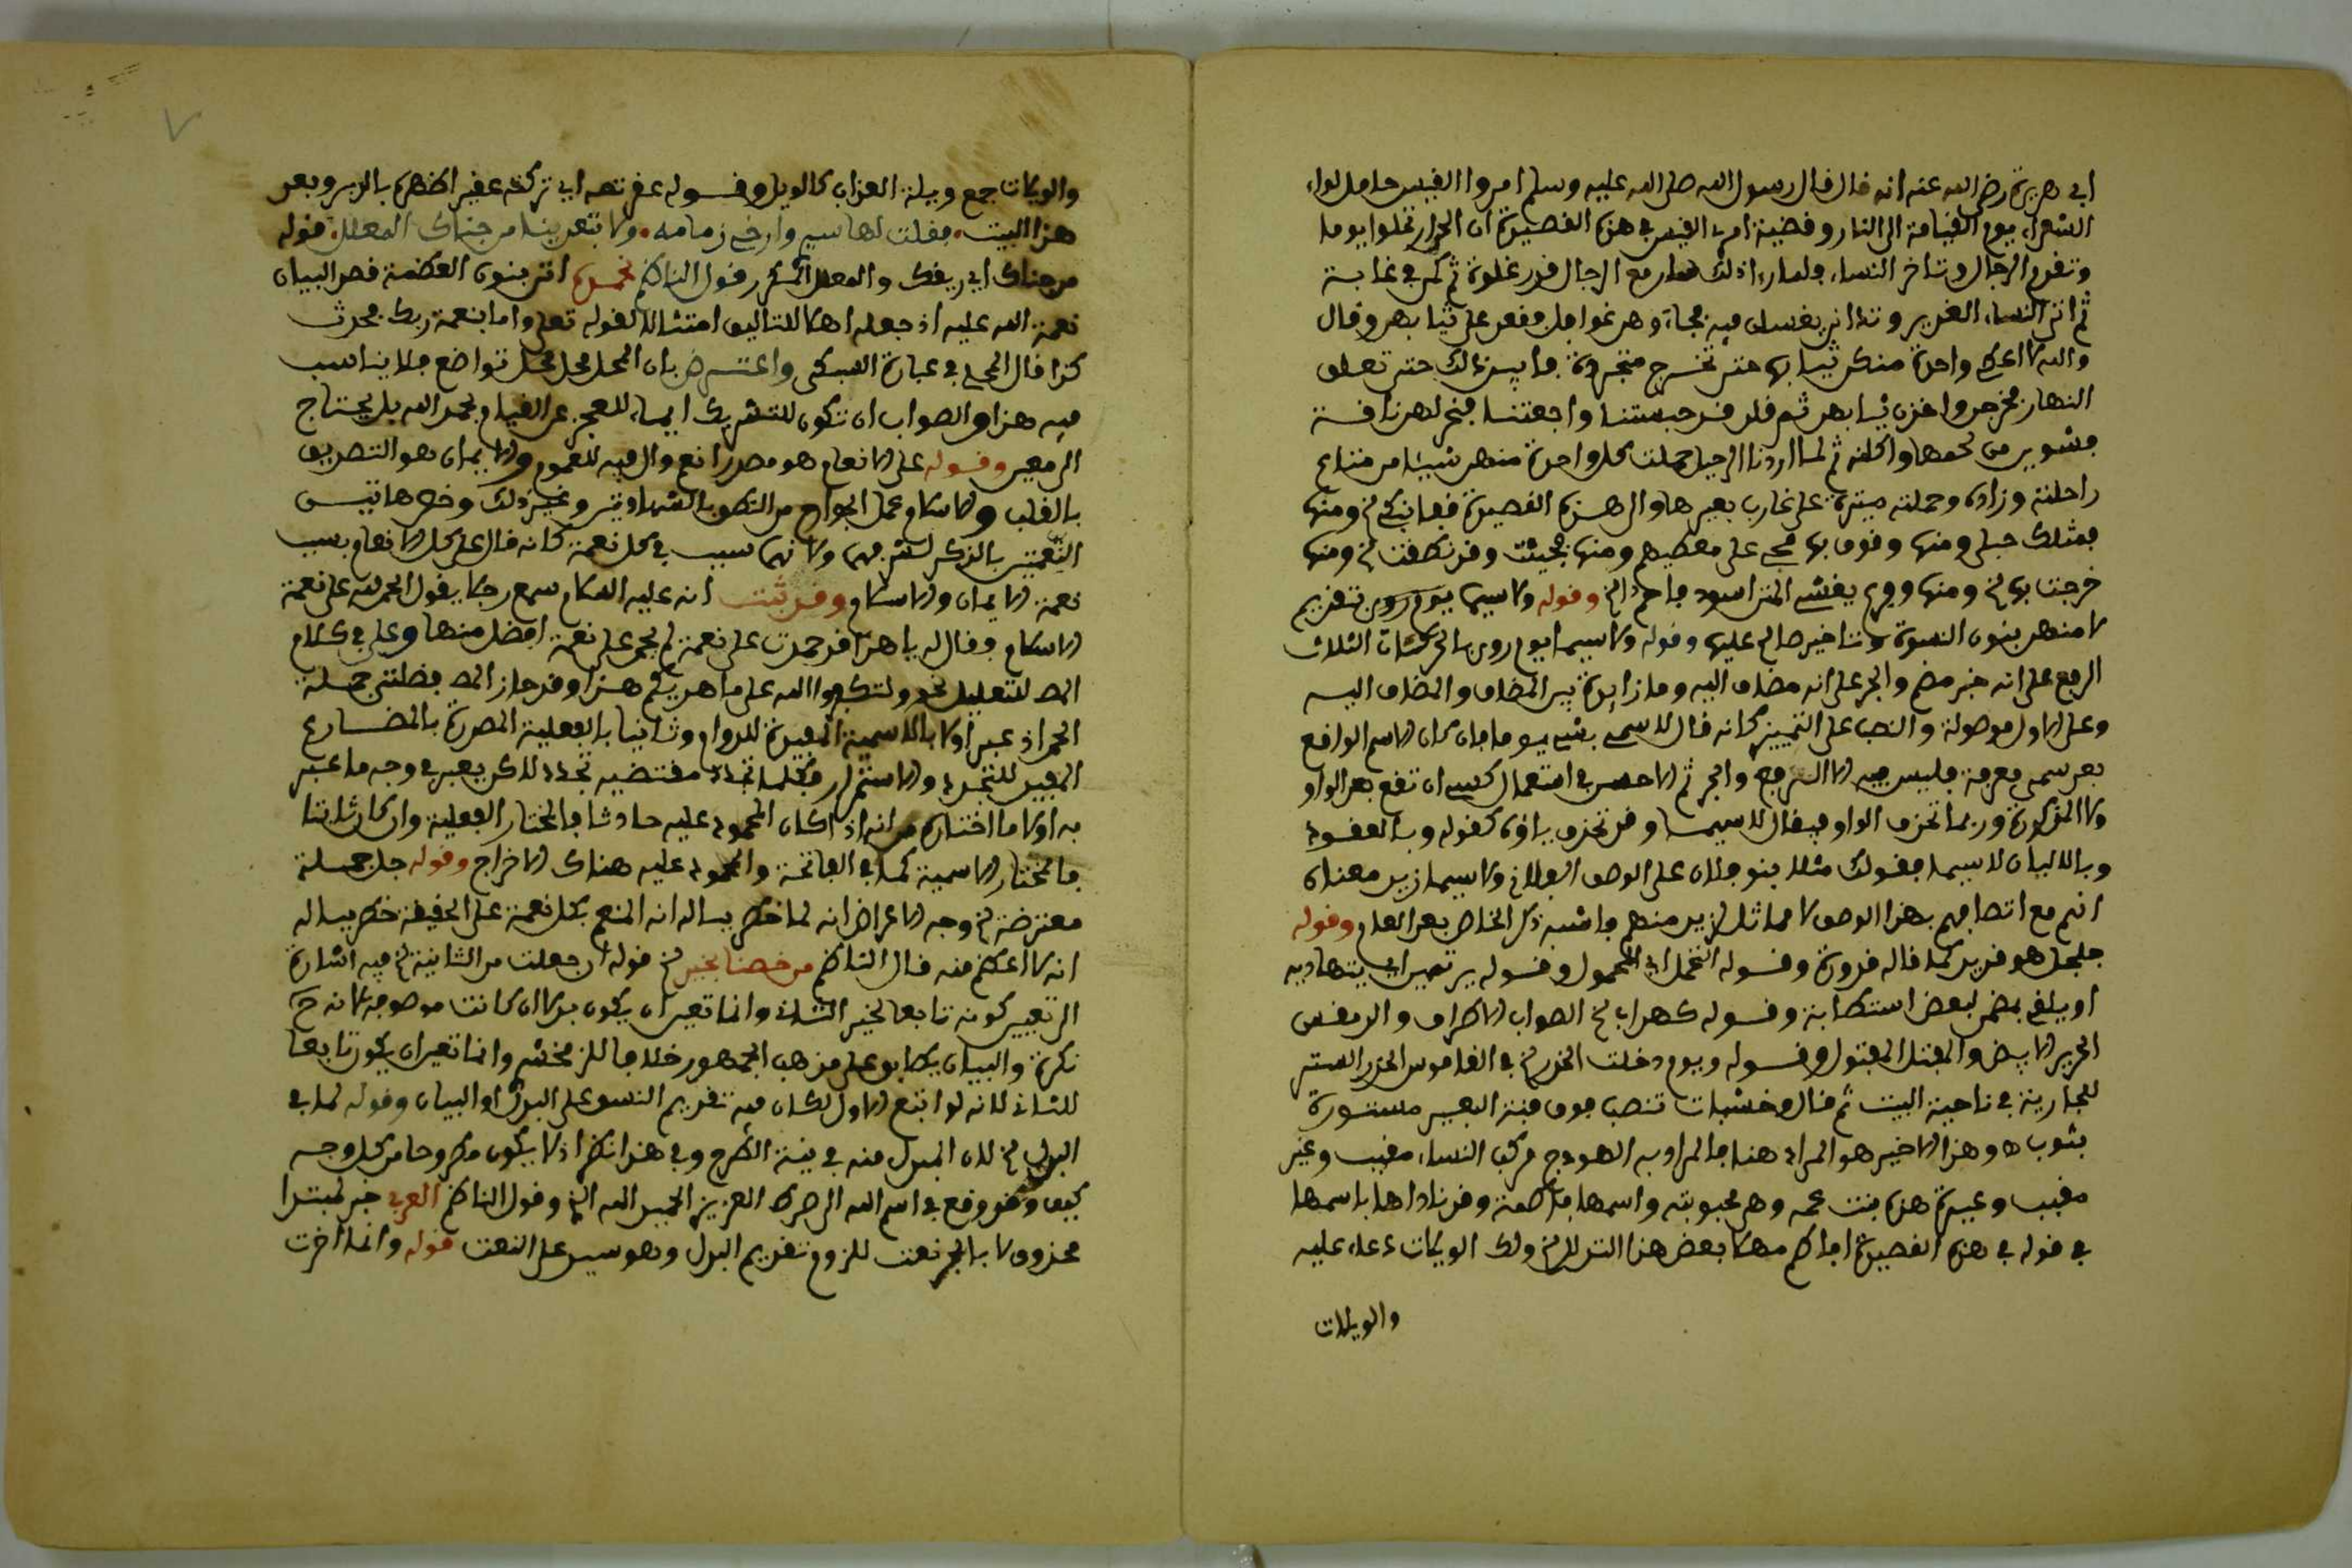 ابي هريرة رضي الله عنه انه قال قال رسول الله صلى الله عليه وسلم امروا القيس حامل لواء
الشعراء يوم القيامة الى النار وقضية امرء القيس في هذه القصيدة ان الحي ارتحلوا يوما
وتقدم الرجال وتاخر النساء ولما رءا ذلك سار مع الرجال قدر غلوة ثم كمن في غابة
ثم اتى النساء الغدير وتدانين يغتسلن فيه فجاء وهن غوافل فقعد على ثيابهن وقال
والله لا اعطي واحدة منكن ثيابها حتى تخرج متجردة فابين ذلك حتى تعلى
النهار فخرجن واخذن ثيابهن ثم قلن قد حبستنا واجعتنا فنحر لهن ناقته
فشوين من لحمها واكلنه ثم لما اردنا الرحيل حملت كل واحدة منهن شيئا من متاع
راحلته وزاده وحملته عنيزة على غارب بعيرها والى هذه القصيدة قفا نبك الخ ومنها
فمثلك حبلى ومنها وقوفا بها صحبي على مطيهم ومنها فجئت وقد نضت الخ ومنها
خرجت بها الخ ومنها وفرع يغشي المتن اسود فاحم الخ وقوله ولاسيما يوم روي بتقديم
لا منهن بنون النسوة وتاخير صالح عليها وقوله ولا سيما يوم روي بالحركات الثلاث
الرفع على انه خبر مضمر والجر على انه مضاف اليه وما زايدة بين المضاف والمضاف اليه
وعلى الاول موصولة والنصب على التمييز كانه قال لا سي بشيء يوما فان كان الاسم الواقع
بعد سي معرفة فليس فيه الا الرفع والجر ثم الاحسن في استعمال سي ان تقع بعد الواو
ولا المذكورة وربما تحذف الواو فيقال لا سيما وقد تخفف ياؤه كقوله وبالعقود
وبالايمان لا سيما فقولك مثلا بنو فلان على الوصف الفلاني ولا سيما زيد معناه
انهم مع اتصافهم بهذا الوصف لا مماثل لزيد منهم فاشبه ذكر الخاص بعد العام وقوله
جلجل هو غدير كما قاله قدورة وقوله المتحمل اي المحمول وقوله يرتمين اي يتهادينه
او يلقي بعضهن لبعض استطابة وقوله كهداب الخ الصواب الاطراف والدمقس
الحرير الابيض والمفتل المفتول وقوله ويوم دخلت الخدر الخ في القاموس الخدر الستر
للجارية في ناحية البيت ثم قال وخشبات تنصب فوق قتب البعير مستورة
بثوب اه وهذا الاخير هو المراد هنا فالمراد به الهودج مركب النساء مقبب وغير
مقبب وعنيزة هذه بنت عمه وهي محبوبته واسمها فاطمة وقد ناداها باسمها
في قوله في هذه القصيدة افاطم مهلا بعض هذا التدلل الخ ولك الويلات دعاء عليه
والويلات
والويلات جمع ويلة العذاب كالويل وقوله عقرته اي تركته عقير الظهر بالدبر وبعد
هذا البيت. فقلت لها سيري وارخي زمامه. ولا تبعديني من جناك المعلل. قوله
من جناك اي ريقك والمعلل المكرر قول الناظم نحمده اتى بنون العظمة قصد البيان
نعمة الله عليه اذ جعله اهلا للتاليف امتثالا لقوله تعلى واما بنعمة ربك فحدث
كذا قال المحلي في عبارة السبكي واعترض بان المحل محل تواضع فلا يناسب
فيه هذا والصواب ان تكون للتشريك ايماء للعجز عن القيام بحمد الله بل يحتاج
الى معين وقوله على الانعام هو مصدر انعم وال فيه للعموم والايمان هو التصديق
بالقلب والاسلام عمل الجوارح من النطق بالشهادتين وغير ذلك وخص هاتين
النعمتين بالذكر لشرفهما ولانهما سبب في كل نعمة كانه قال على كل الانعام بسبب
نعمة الايمان والاسلام وقد ثبت انه عليه السلام سمع رجلا يقول الحمد لله على نعمة
الاسلام فقال له يا هذا قد حمدت على نعمة لم يحمد على نعمة افضل منها وعلى في كلام
المص للتعليل نحو ولتكبروا الله على ما هديكم هذا وقد حاز المص فضلتي جملة
الحمد اذ عبر اولا بالاسمية المفيدة للدوام وثانيا بالفعلية المصدرة بالمضارع
المفيد للتجدد والاستمرار فكلما تجدد مقتضيه تجدد لاكن يعبر في وجه ما عبر
به اولا ما اختاره من انه اذا كان المحمود عليه حادثا فالمختار الفعلية وان كان ثابتا
فالمختار الاسمية كما في الفاتحة والمحمود عليه هناك الاخراج وقوله جل جملة
معترضة الخ وجه الاعتراض انه لما خطر بباله انه المنعم بكل نعمة على الحقيقة خطر بباله
انه لا اعظم منه قال الناظم من خصنا بخير الخ قوله ان جعلت من الثانية الخ فيه اشارة
الى تعيين كونه تابعا لخير الثاني وانما تعين ان يكون بدلا ان كانت موصوفة لانه ح
نكرة والبيان يطابق على مذهب الجمهور خلافا للزمخشري وانما تعين ان يكون تابعا
للثاني لانه لو اتبع الاول لكان فيه تقديم النسق على البدل او البيان وقوله لما في
البدل الخ لان المبدل منه في نية الطرح وفي هذا نظر اذ لا يكون مطروحا من كل وجه
كيف وقد وقع في اسم الله الى صراط العزيز الحميد الله الخ وقول الناظم العربي خبر لمبتدا
محذوف لا بالجر نعت للزوم تقديم البدل وهو سيد على النعت قوله وانما اخرت